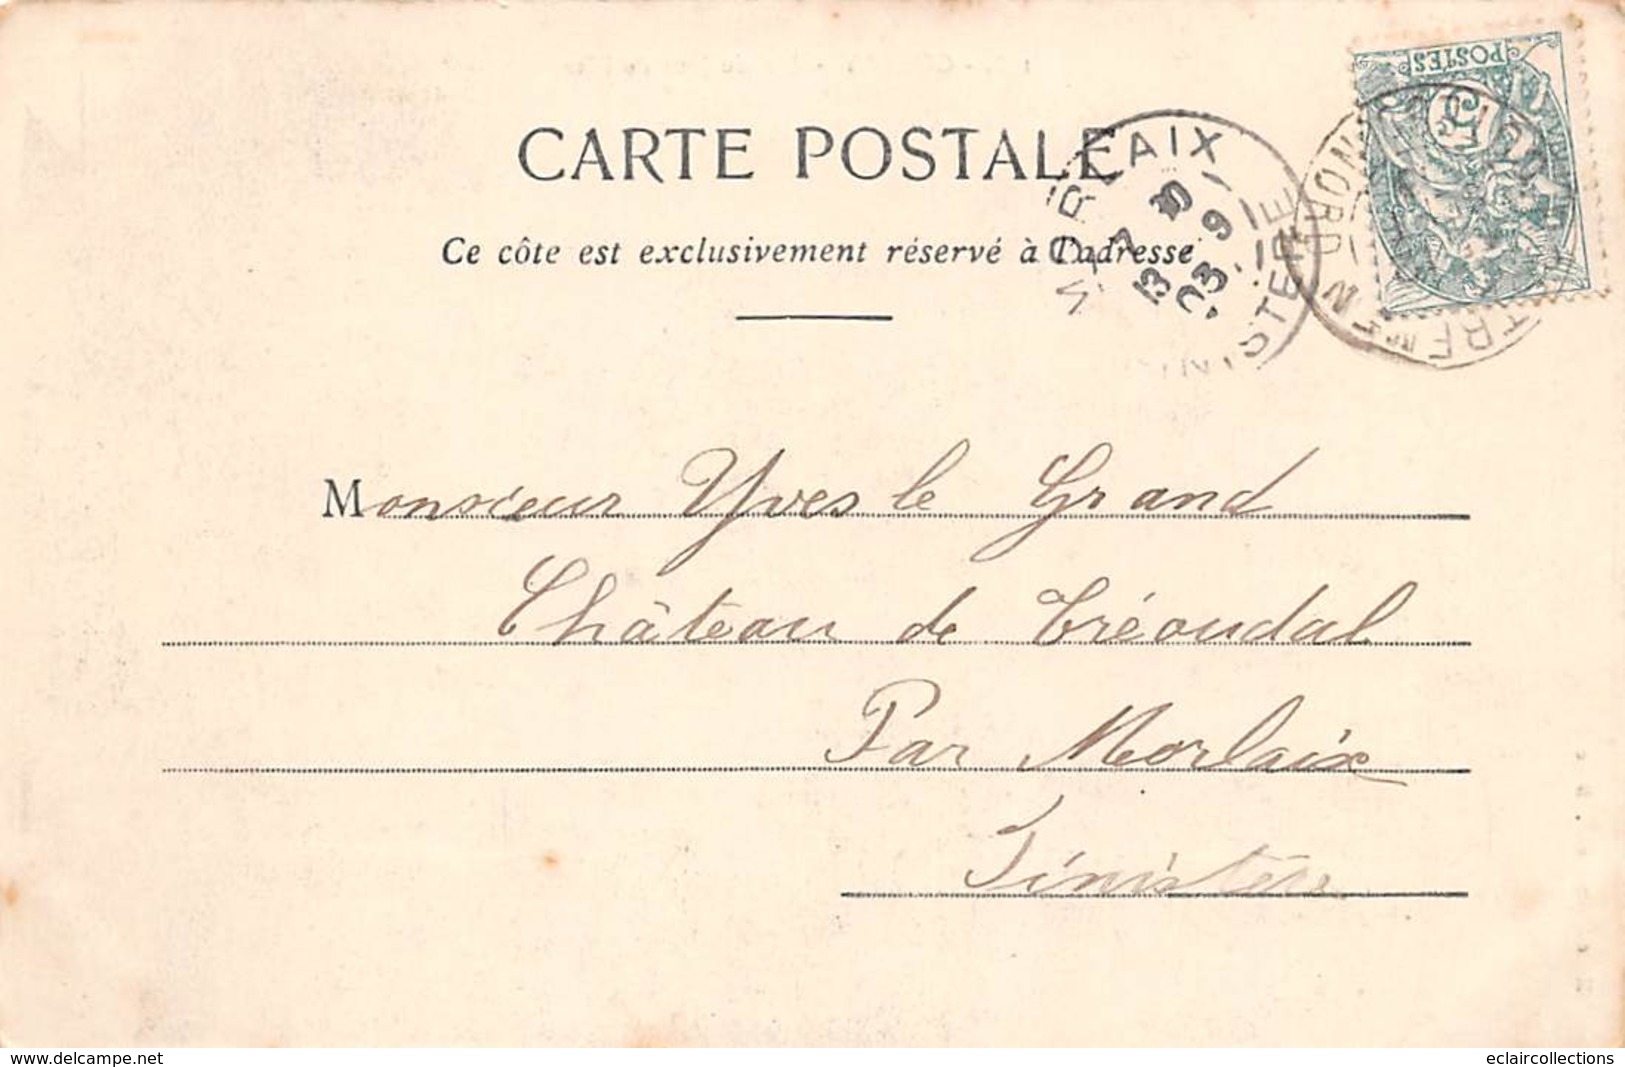 CARTE POSTALE
Ce côte est exclusivement réservé à l'adresse
POSTES
5
MORLAIX
13 9
03
FINISTERE
Monsieur Yves le Grand
Château de Tréoudal
Par Morlaix
Finistère
www.delcampe.net
eclaircollections